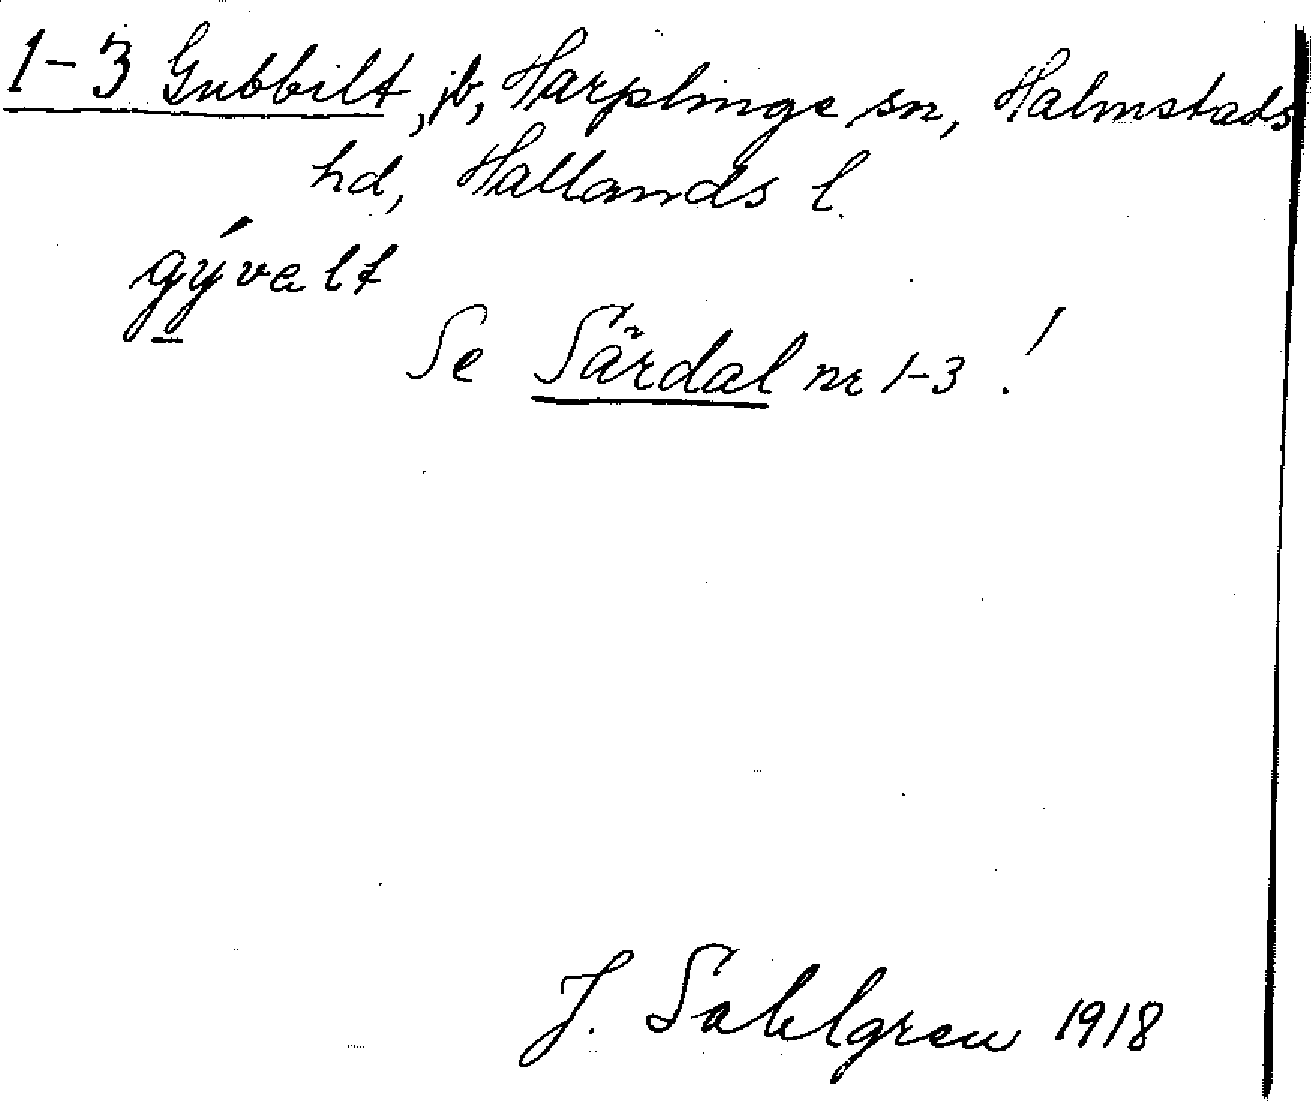 1-3 Gubbilt, jb, Harplinge sn, Halmstads
hd, Hallands l.
gývalt
Se Särdal nr 1-3!
J. Sahlgren 1918